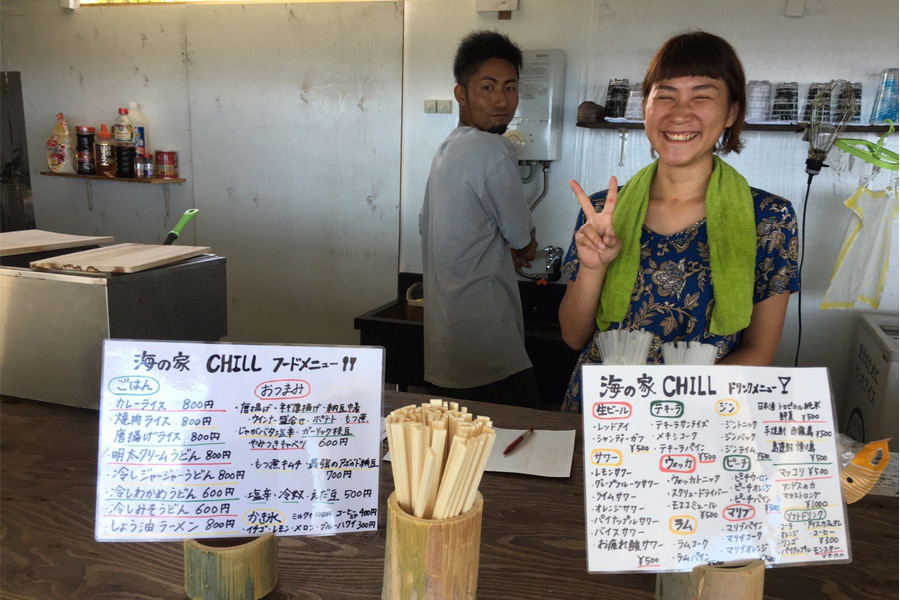 海の家 CHILL フードメニュー
ごはん
カレーライス 800円
焼肉ライス 800円
唐揚げライス 800円
明太クリームうどん 800円
冷しジャージャーうどん 800円
冷しわかめうどん 600円
冷しみそうどん 600円
しょう油ラーメン 800円
おつまみ
・唐揚げ
ウインナー盛合せ・ポテト
じゃがバタ塩辛・ガーリック枝豆
やみつきキャベツ 600円
・もつ煮キムチ
700円
塩辛・冷奴・えだ豆 500円
かき氷
ミルク+100円 コーヒー400円
イチゴ・レモン・メロン・ブルーハワイ 300円
海の家 CHILL ドリンクメニュー
生ビール
レッドアイ
シャンディーガフ
¥500
サワー
レモンサワー
グレープフルーツサワー
ライムサワー
オレンジサワー
パイナップルサワー
バイスサワー
お疲れ酸サワー
¥500
テキーラ
テキーラサンライズ
メキシコーク
テキーラパイン
¥500
ウォッカ
ウォッカトニック
スクリュードライバー
モスコミュール
¥500
ラム
ラムコーク
ラムパイン
¥500
ジン
ジントニック
ジンバック
ジンライム
¥500
ピーチ
ピーチウーロン
ピーチオレンジ
ピーチパイン
¥500
マリブ
マリブパイン
マリブコーク
マリブオレンジ
¥500
日本酒
¥500
¥500
マッコリ ¥500
¥1000
ソフトドリンク
コーラ アイスカフェオレ
オレンジ ・コーヒー
リンゴ ¥300
パイナップル モンスター